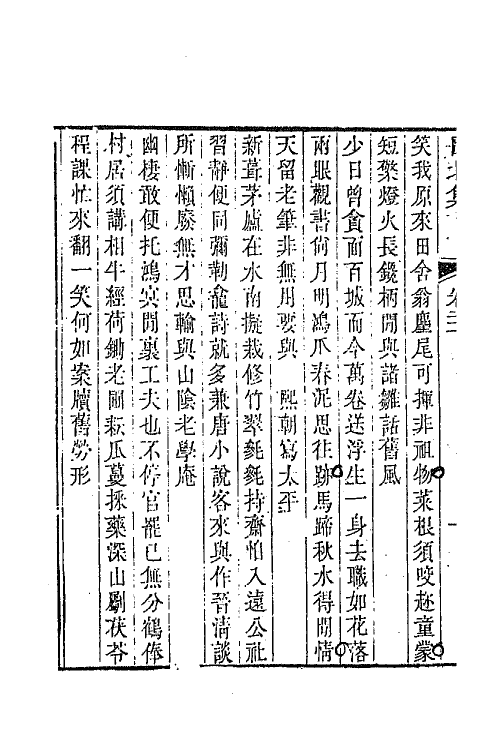 笑我原來田舍翁麈尾可揮非祖物菜根須咬趂童蒙
短檠燈火長鑱柄閒與諸雛話舊風
少日曾貪面百城而今萬卷送浮生一身去職如花落
兩眼觀書尙月明鴻爪春泥思往跡馬蹄秋水得閒情
天留老筆非無用要與 熙朝寫太平
新葺茅廬在水南擬栽修竹翠毿毿持齋怕入遠公社
習靜便同彌勒龕詩就多兼唐小說客來與作晉淸談
所慚懶廢無才思輸與山陰老學庵
幽棲敢便托鴻冥閒裏工夫也不停官罷已無分鶴俸
村居須講相牛經荷鋤老圃耘瓜蔓採藥深山劚茯苓
程課忙來翻一笑何如案牘舊勞形